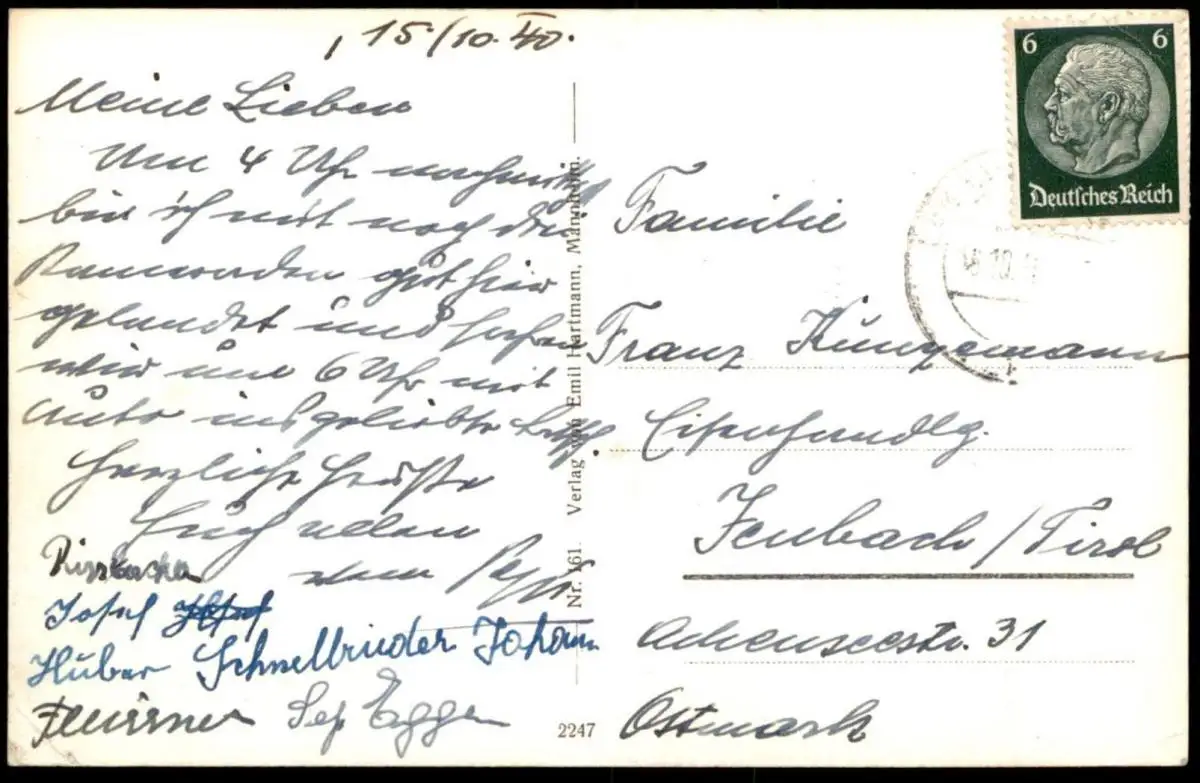 15./10.40.
Meine Lieben
Um 4 Uhr nachmittg
bin ich mit noch drei
Kameraden gut hier
gelandet und fahren
wir um 6 Uhr mit
Auto ins geliebte
Herzliche Grüße
Euch allen
Josef
Huber Schnellrieder Johann
Sep Egger
Verlag von Emil Hartmann, Mannheim.
Nr. 161.
2247
6 6
Deutsches Reich
10.
Familie
Franz Kunzemann
Eisenhandlg.
Jenbach/Tirol
Achenseestr. 31
Ostmark